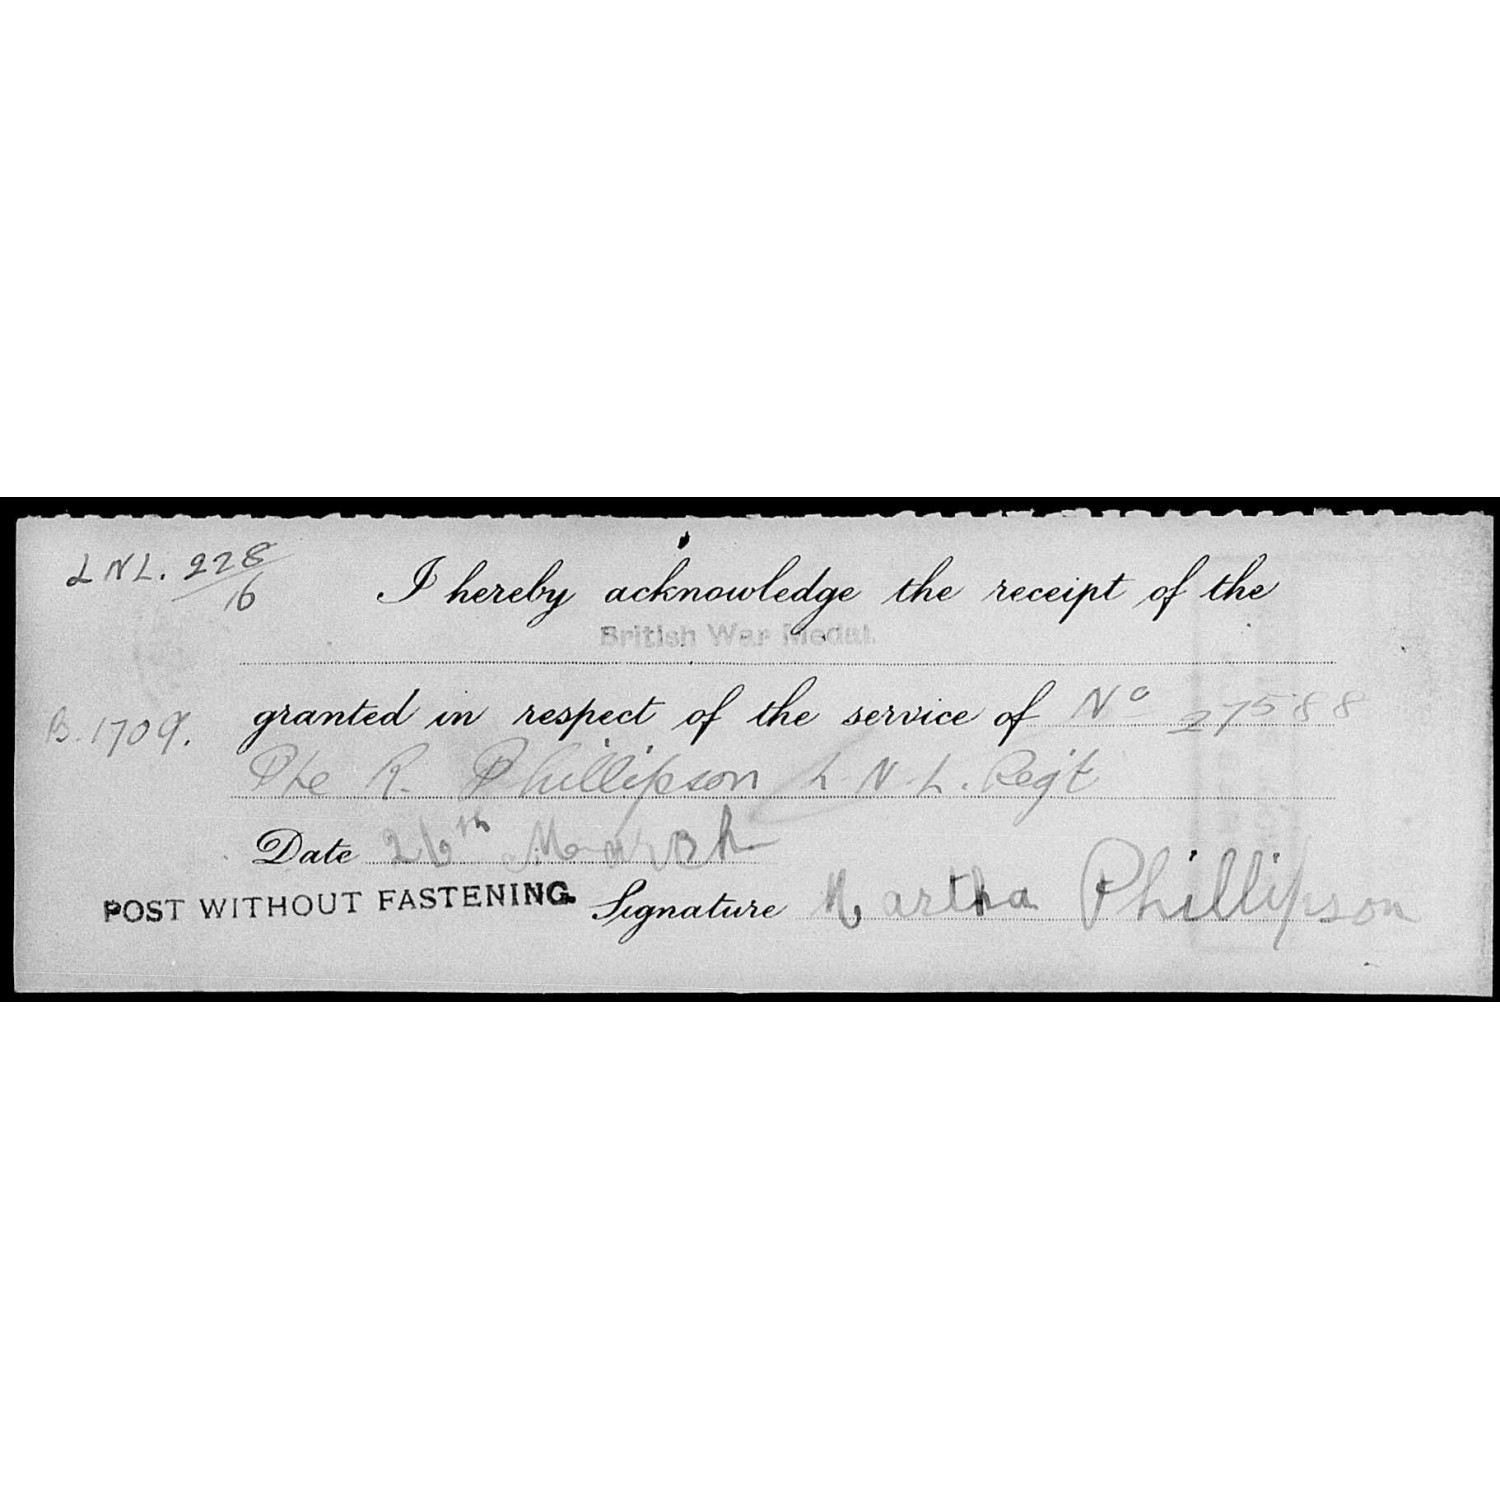 LNL. 228/16
I hereby acknowledge the receipt of the
British War Medal.
B.1709. granted in respect of the service of No 27588
Pte R. Phillipson L.N.L. Regt
Date 26th March
POST WITHOUT FASTENING. Signature Martha Phillipson